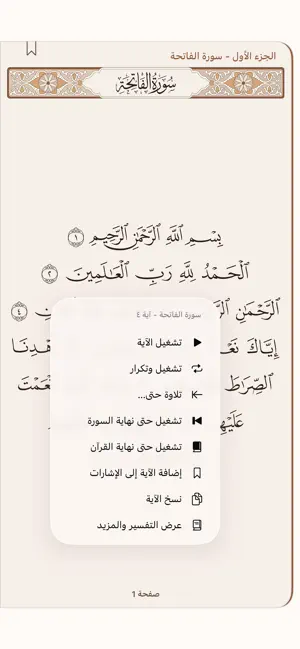 الجزء الأول - سورة الفاتحة
سورة الفاتحة
بِسْمِ اللَّهِ الرَّحْمَٰنِ الرَّحِيمِ ١
الْحَمْدُ لِلَّهِ رَبِّ الْعَالَمِينَ ٢
الرَّحْمَٰنِ ٤
إِيَّاكَ
الصِّرَاطَ
سورة الفاتحة - آية ٤
تشغيل الآية
تشغيل وتكرار
تلاوة حتى...
تشغيل حتى نهاية السورة
تشغيل حتى نهاية القرآن
إضافة الآية إلى الإشارات
نسخ الآية
عرض التفسير والمزيد
صفحة 1